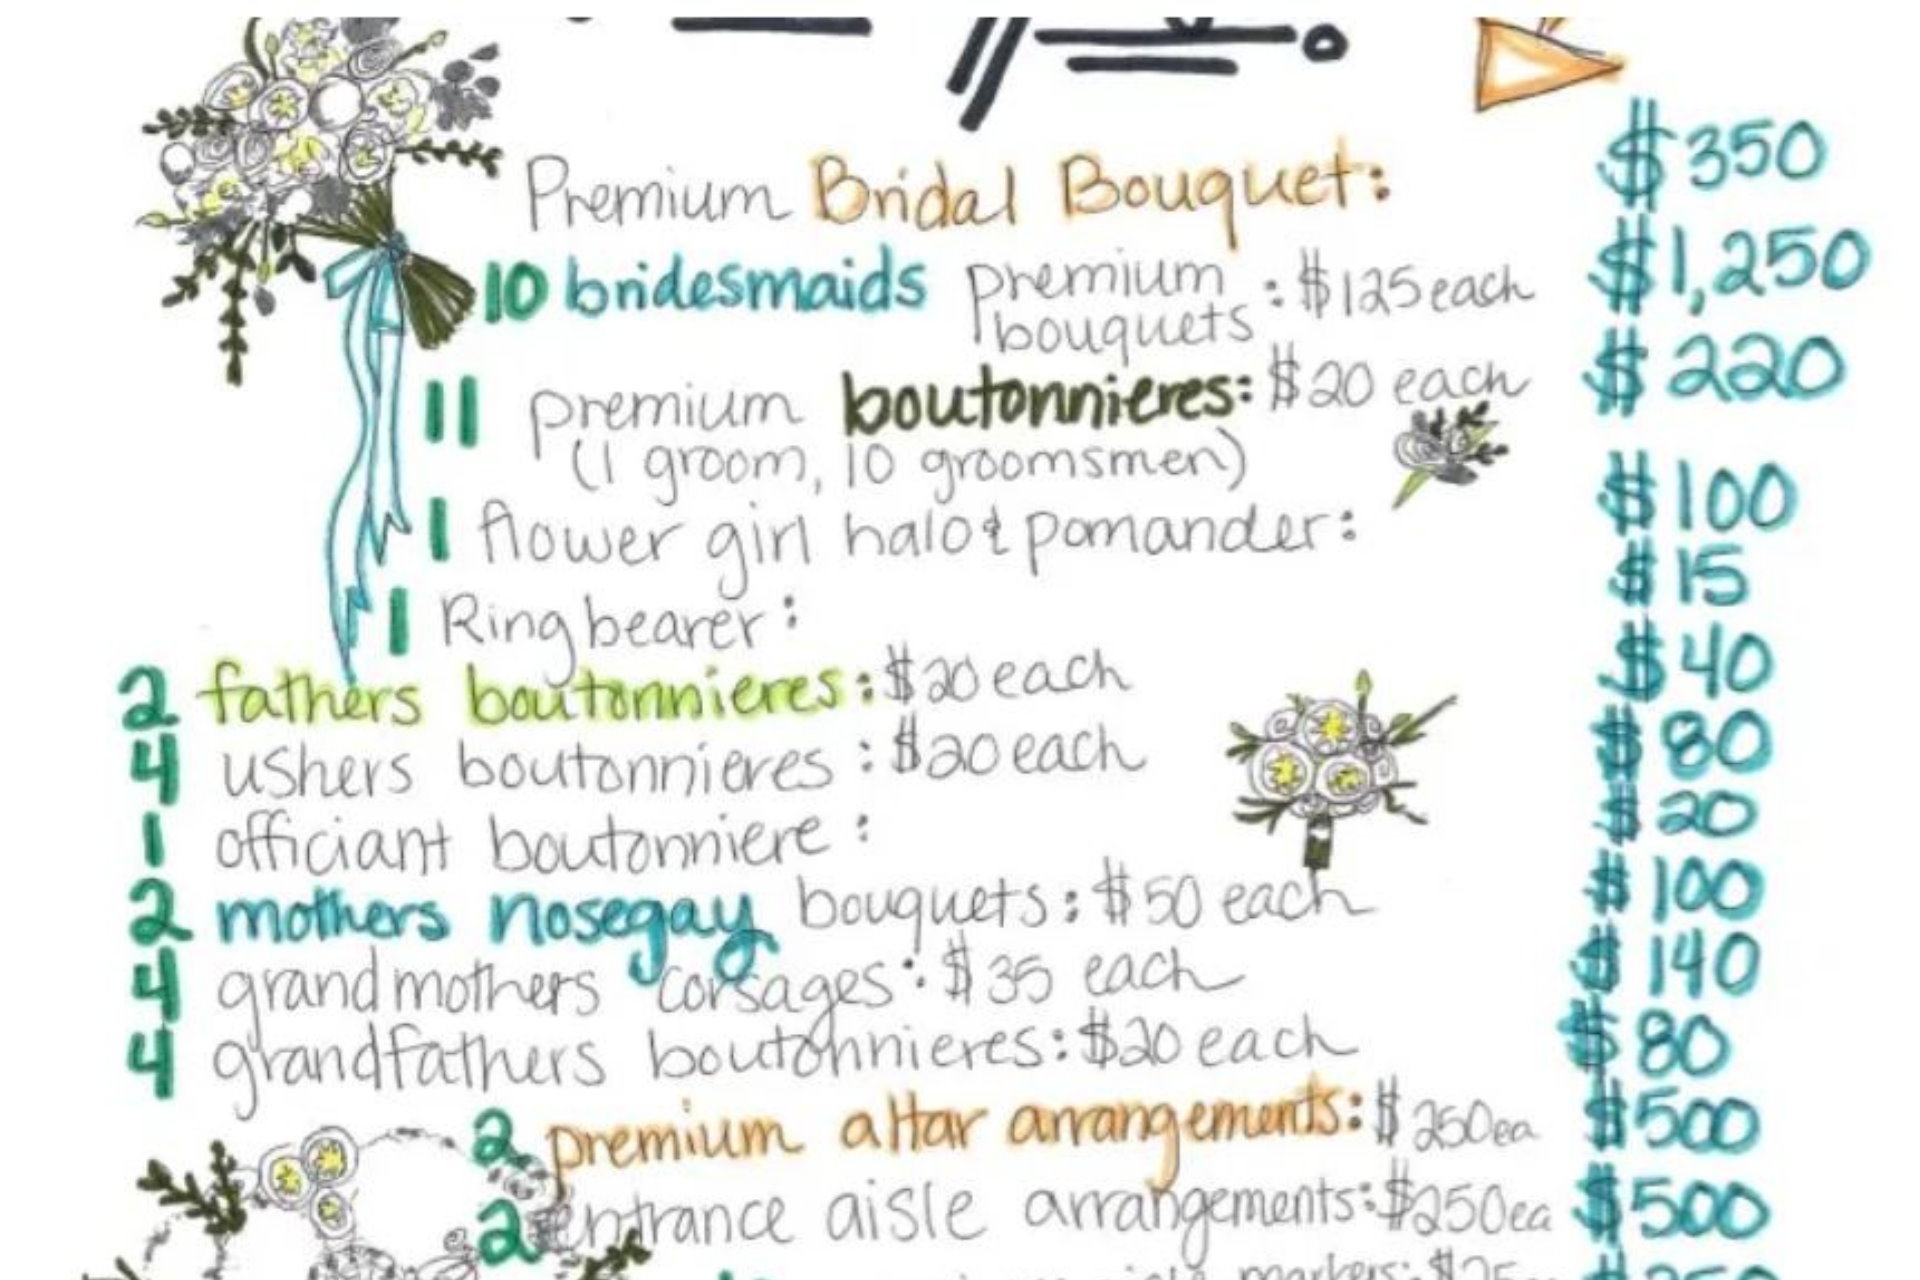 Premium Bridal Bouquet: $350
10 bridesmaids premium bouquets : $125 each $1,250
11 premium boutonnieres: $20 each $220
(1 groom, 10 groomsmen)
1 flower girl halo & pomander: $100
1 Ring bearer: $15
2 fathers boutonnieres: $20 each $40
4 ushers boutonnieres : $20 each $80
1 officiant boutonniere : $20
2 mothers nosegay bouquets: $50 each $100
4 grandmothers corsages: $35 each $140
4 grandfathers boutonnieres: $20 each $80
2 premium altar arrangements: $250ea $500
2 entrance aisle arrangements: $250ea $500
aisle markers: